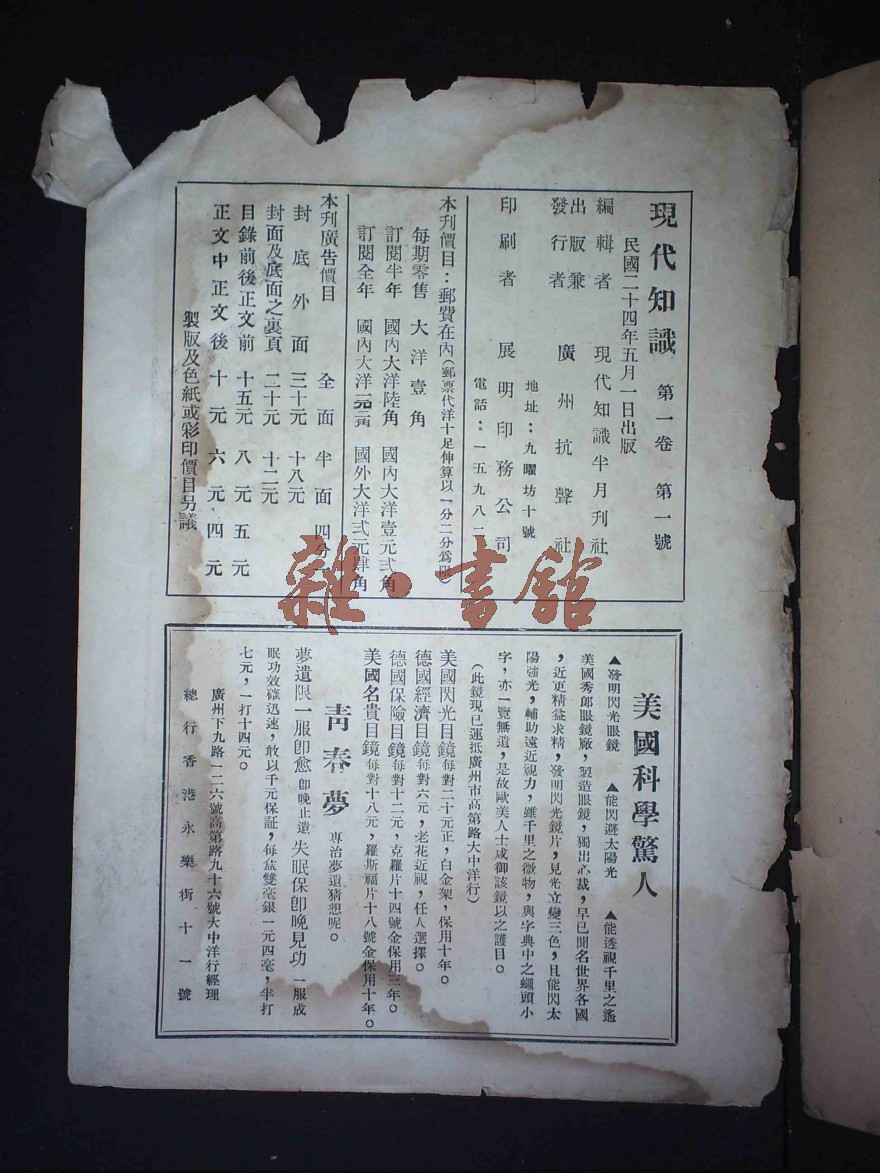 現代知識 第一卷 第一號
民國二十四年五月一日出版
編輯者 現代知識半月刊社
出版兼
發行者 廣州抗聲社
地址：九曜坊十號
印刷者 展明印務公司
電話：一五九八一
本刊價目：郵費在內(郵票代洋十足伸算以一分二分為限)
每期零售 大洋壹角
訂閱半年 國內大洋陸角 國內大洋壹元弍角
訂閱全年 國內大洋 國外大洋弍元肆角
本刊廣告價目 全面 半面 四分
封底外面 三十元 十八元
封面及底面之裏頁 二十元 十二元
目錄前後正文前 十五元 八元 五元
正文中正文後 十元 六元 四元
製版及色紙或彩印價目另議
雜·書館
美國科學驚人
▲發明閃光眼鏡 ▲能閃避太陽光 ▲能透視千里之遙
美國秀郎眼鏡廠，製造眼鏡，獨出心裁，早已聞名世界各國
，近更精益求精，發明閃光鏡片，見光立變三色，且能閃太
陽強光，輔助遠近視力，雖千里之微物，與字典中之蠅頭小
字，亦一覽無遺，是故歐美人士咸御該鏡以之護目。
(此鏡現已運抵廣州市高第路大中洋行)
美國閃光目鏡每對二十元正，白金架，保用十年。
德國經濟目鏡每對六元，老花近視，任人選擇。
德國保險目鏡每對十二元，克羅片十四號金保用三年。
美國名貴目鏡每對十八元，羅斯福片十八號金保用十年。
青春夢 專治夢遺猜想呢。
夢遺限一服卽愈 卽晚止遺 失眠保卽晚見功 一服成
眠功效確迅速，敢以千元保証，每盒雙毫銀一元四毫，半打
七元，一打十四元。
廣州下九路一二六號高第路九十六號大中洋行經理
總行香港永樂街十一號